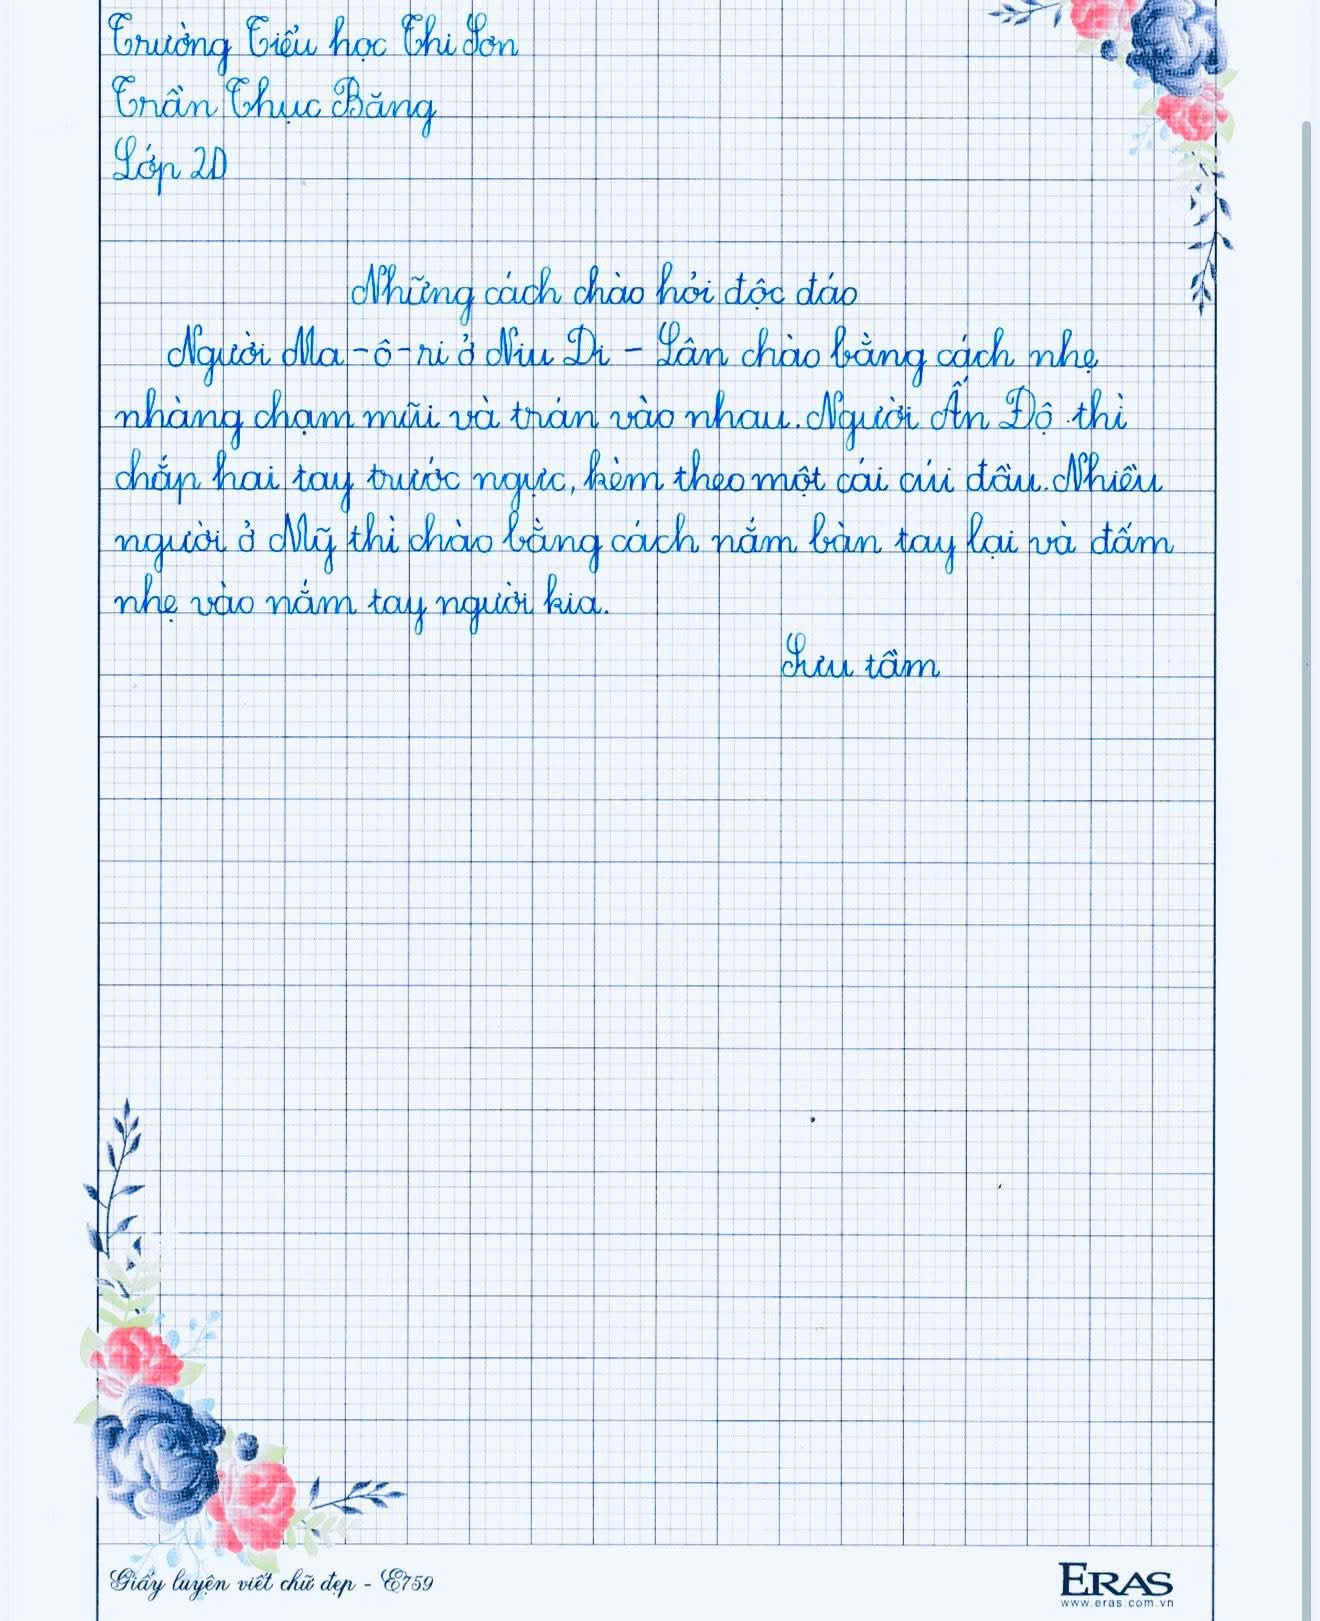 Trường Tiểu học Thi Sơn
Trần Thục Băng
Lớp 2D
Những cách chào hỏi độc đáo
Người Ma-ô-ri ở Niu Di - Lân chào bằng cách nhẹ
nhàng chạm mũi và trán vào nhau. Người Ấn Độ thì
chắp hai tay trước ngực, kèm theo một cái cúi đầu. Nhiều
người ở Mỹ thì chào bằng cách nắm bàn tay lại và đấm
nhẹ vào nắm tay người kia.
Sưu tầm
Giấy luyện viết chữ đẹp - E759
ERAS
www.eras.com.vn